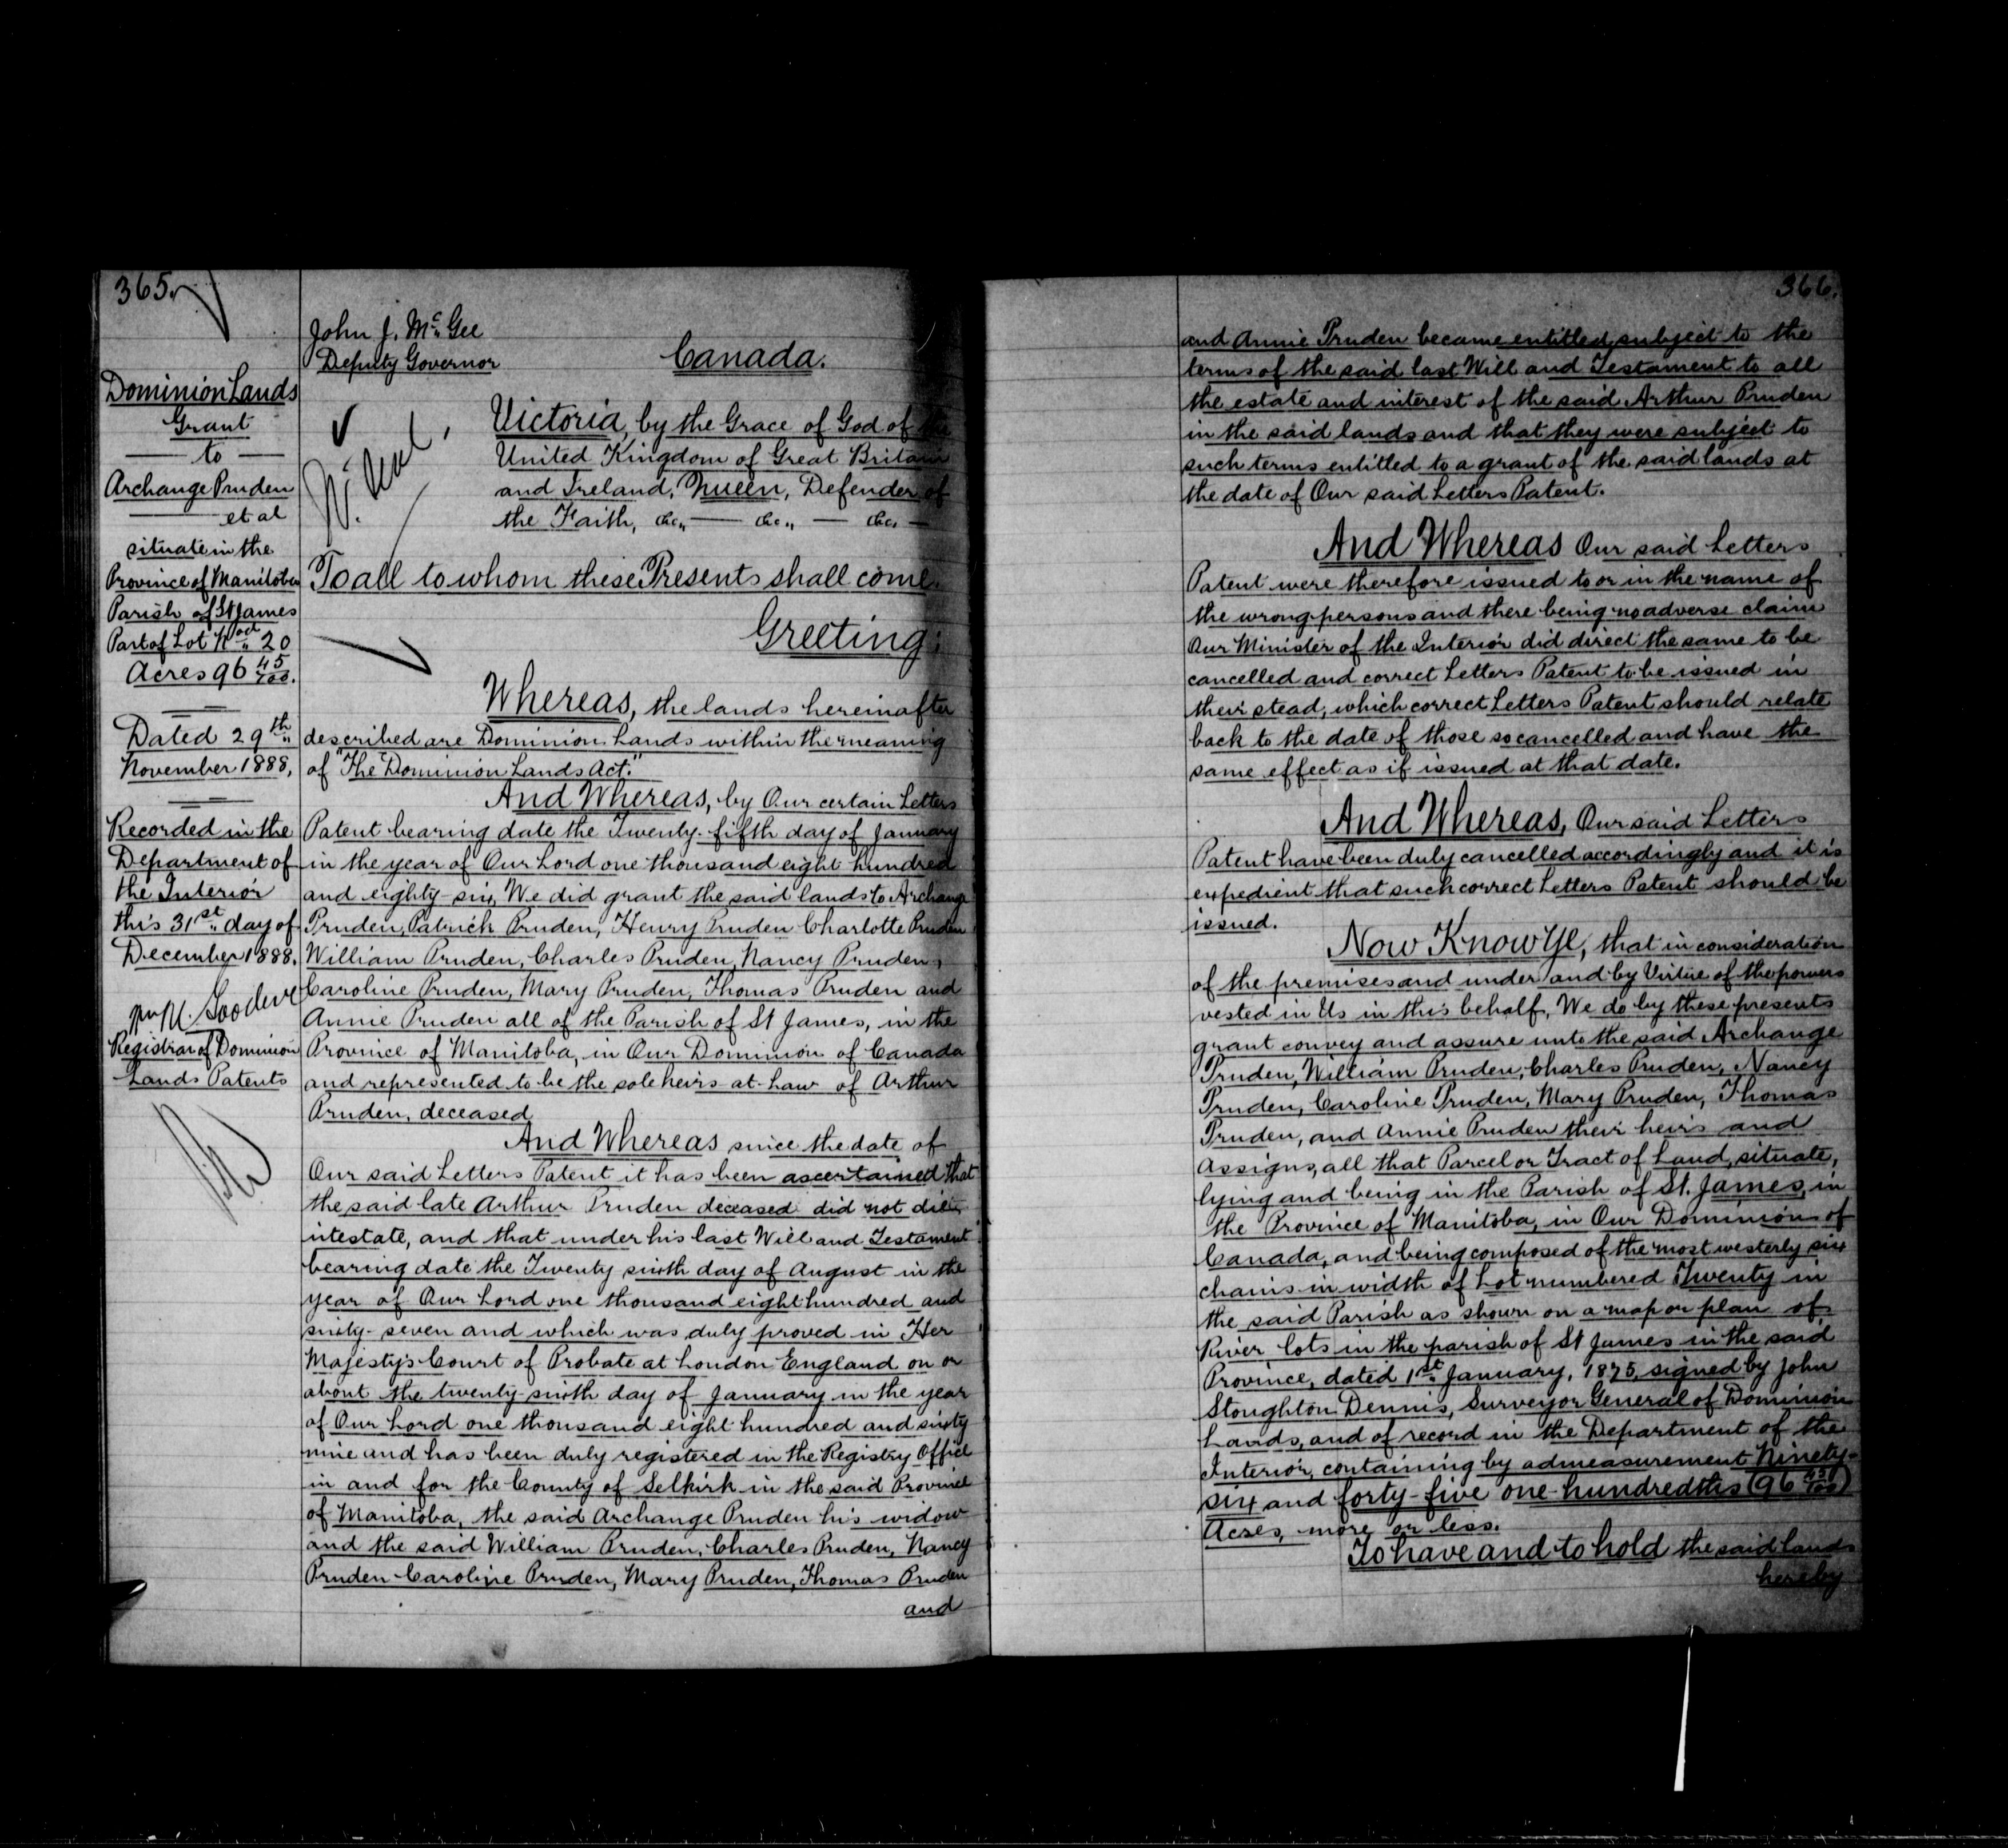 365.
Dominion Lands
Grant
— to —
Archange Pruden
et al
situate in the
Province of Manitoba
Parish of St James
Part of Lot Nod 20
Acres 96 45/100.
Dated 29th
November 1888,
Recorded in the
Department of
the Interior
this 31st day of
December 1888.
Wm M. Goodeve
Registrar of Dominion
Lands Patents
John J. McGee
Deputy Governor
Canada.
Victoria, by the Grace of God of the
United Kingdom of Great Britain
and Ireland, Queen, Defender of
the Faith, &c,, — &c,, — &c, —
To all to whom these Presents shall come
Greeting:
Whereas, the lands hereinafter
described are Dominion Lands within the meaning
of "The Dominion Lands Act."
And Whereas, by Our certain Letters
Patent bearing date the Twenty-fifth day of January
in the year of Our Lord one thousand eight hundred
and eighty-six, We did grant the said lands to Archange
Pruden, Patrick Pruden, Henry Pruden Charlotte Pruden
William Pruden, Charles Pruden, Nancy Pruden,
Caroline Pruden, Mary Pruden, Thomas Pruden and
Annie Pruden all of the Parish of St James, in the
Province of Manitoba, in Our Dominion of Canada
and represented to be the sole heirs-at-Law of Arthur
Pruden, deceased
And Whereas since the date of
Our said Letters Patent it has been ascertained that
the said late Arthur Pruden deceased did not die
intestate, and that under his last Will and Testament
bearing date the Twenty sixth day of August in the
year of Our Lord one thousand eight hundred and
sixty-seven and which was duly proved in Her
Majesty's Court of Probate at London England on or
about the twenty-sixth day of January in the year
of Our Lord one thousand eight hundred and sixty
nine and has been duly registered in the Registry Office
in and for the County of Selkirk in the said Province
of Manitoba, the said Archange Pruden his widow
and the said William Pruden, Charles Pruden, Nancy
Pruden Caroline Pruden, Mary Pruden, Thomas Pruden
and
366.
and Annie Pruden became entitled subject to the
terms of the said last Will and Testament to all
the estate and interest of the said Arthur Pruden
in the said lands and that they were subject to
such terms entitled to a grant of the said lands at
the date of Our said Letters Patent.
And Whereas Our said Letters
Patent were therefore issued to or in the name of
the wrong persons and there being no adverse claim
Our Minister of the Interior did direct the same to be
cancelled and correct Letters Patent to be issued in
their stead, which correct Letters Patent should relate
back to the date of those so cancelled and have the
same effect as if issued at that date.
And Whereas, Our said Letters
Patent have been duly cancelled accordingly and it is
expedient that such correct Letters Patent should be
issued.
Now Know Ye, that in consideration
of the premises and under and by Virtue of the powers
vested in Us in this behalf, We do by these presents
grant convey and assure unto the said Archange
Pruden, William Pruden, Charles Pruden, Nancy
Pruden, Caroline Pruden, Mary Pruden, Thomas
Pruden, and Annie Pruden their heirs and
Assigns, all that Parcel or Tract of Land, situate,
lying and being in the Parish of St. James, in
the Province of Manitoba, in Our Dominion of
Canada, and being composed of the most westerly six
chains in width of Lot numbered Twenty in
the said Parish as shown on a map or plan of
River lots in the parish of St James in the said
Province, dated 1st January, 1875, signed by John
Stoughton Dennis, Surveyor General of Dominion
Lands, and of record in the Department of the
Interior, containing by admeasurement Ninety-
six and forty-five one-hundredths (96 45/100)
Acres, more or less.
To have and to hold the said lands
hereby